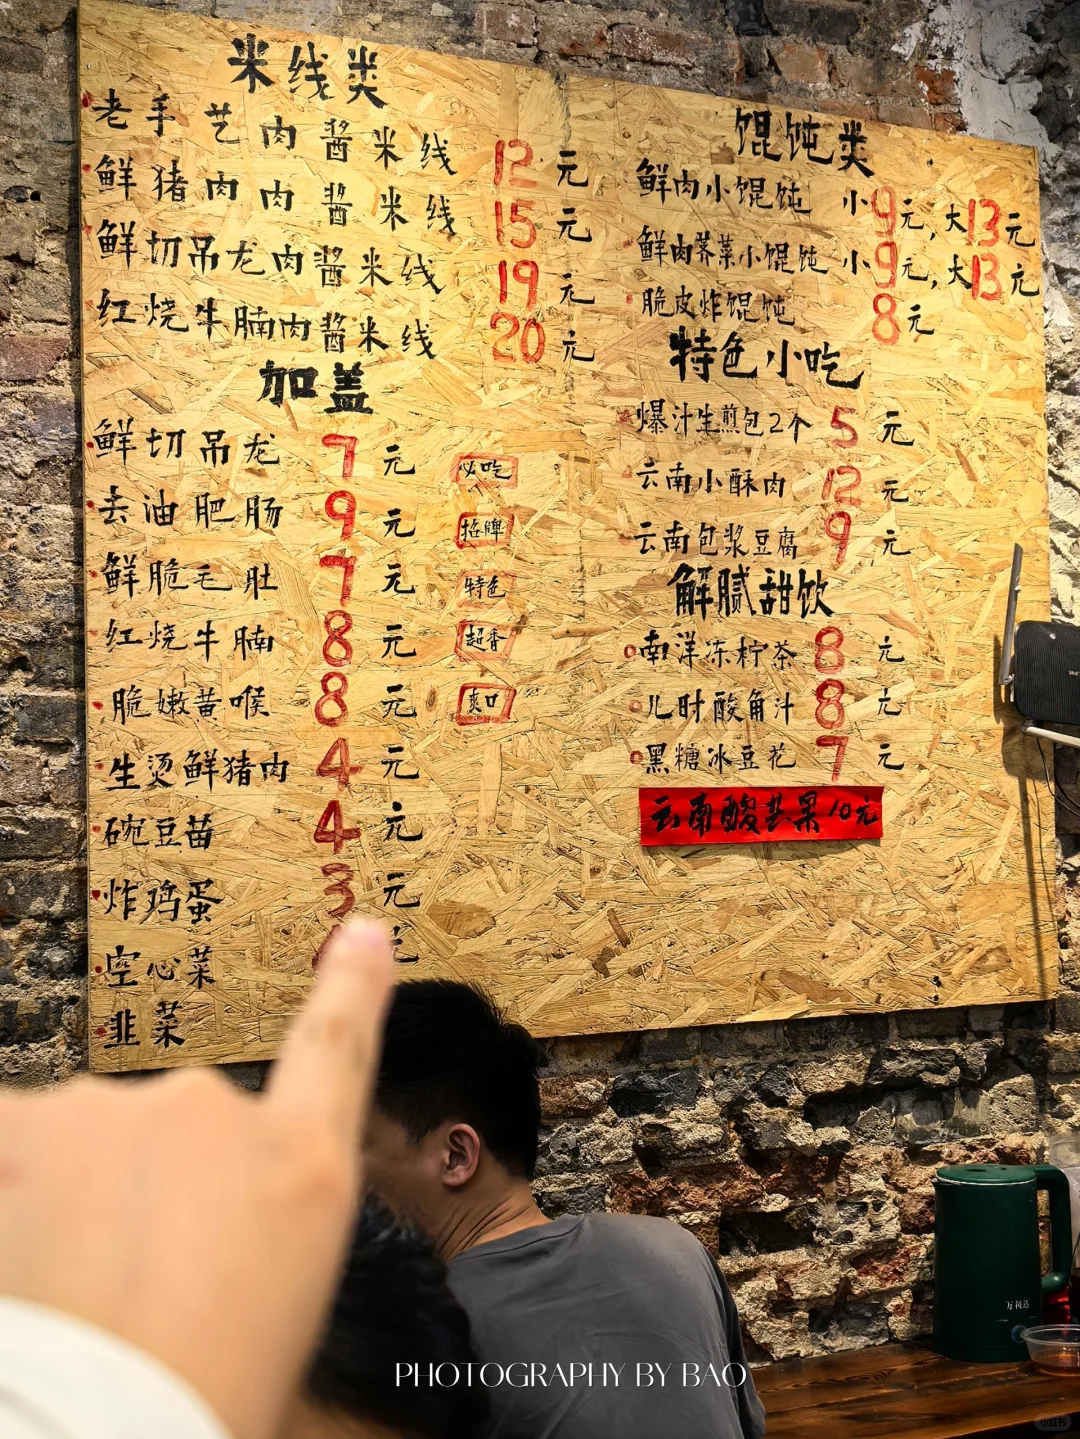 米线类
老手艺肉酱米线 12元
鲜猪肉肉酱米线 15元
鲜切吊龙肉酱米线 19元
红烧牛腩肉酱米线 20元
加盖
鲜切吊龙 7元
去油肥肠 9元
鲜脆毛肚 7元
红烧牛腩 8元
脆嫩黄喉 8元
生烫鲜猪肉 4元
碗豆苗 4元
炸鸡蛋 3元
空心菜
韭菜
必吃
招牌
特色
超香
爽口
馄饨类
鲜肉小馄饨 小9元,大13元
鲜肉荠菜小馄饨 小9元,大13元
脆皮炸馄饨 8元
特色小吃
爆汁生煎包2个 5元
云南小酥肉 12元
云南包浆豆腐 9元
解腻甜饮
南洋冻柠茶 8元
儿时酸角汁 8元
黑糖冰豆花 7元
云南酸芒果10元
万利达
PHOTOGRAPHY BY BAO
小红书